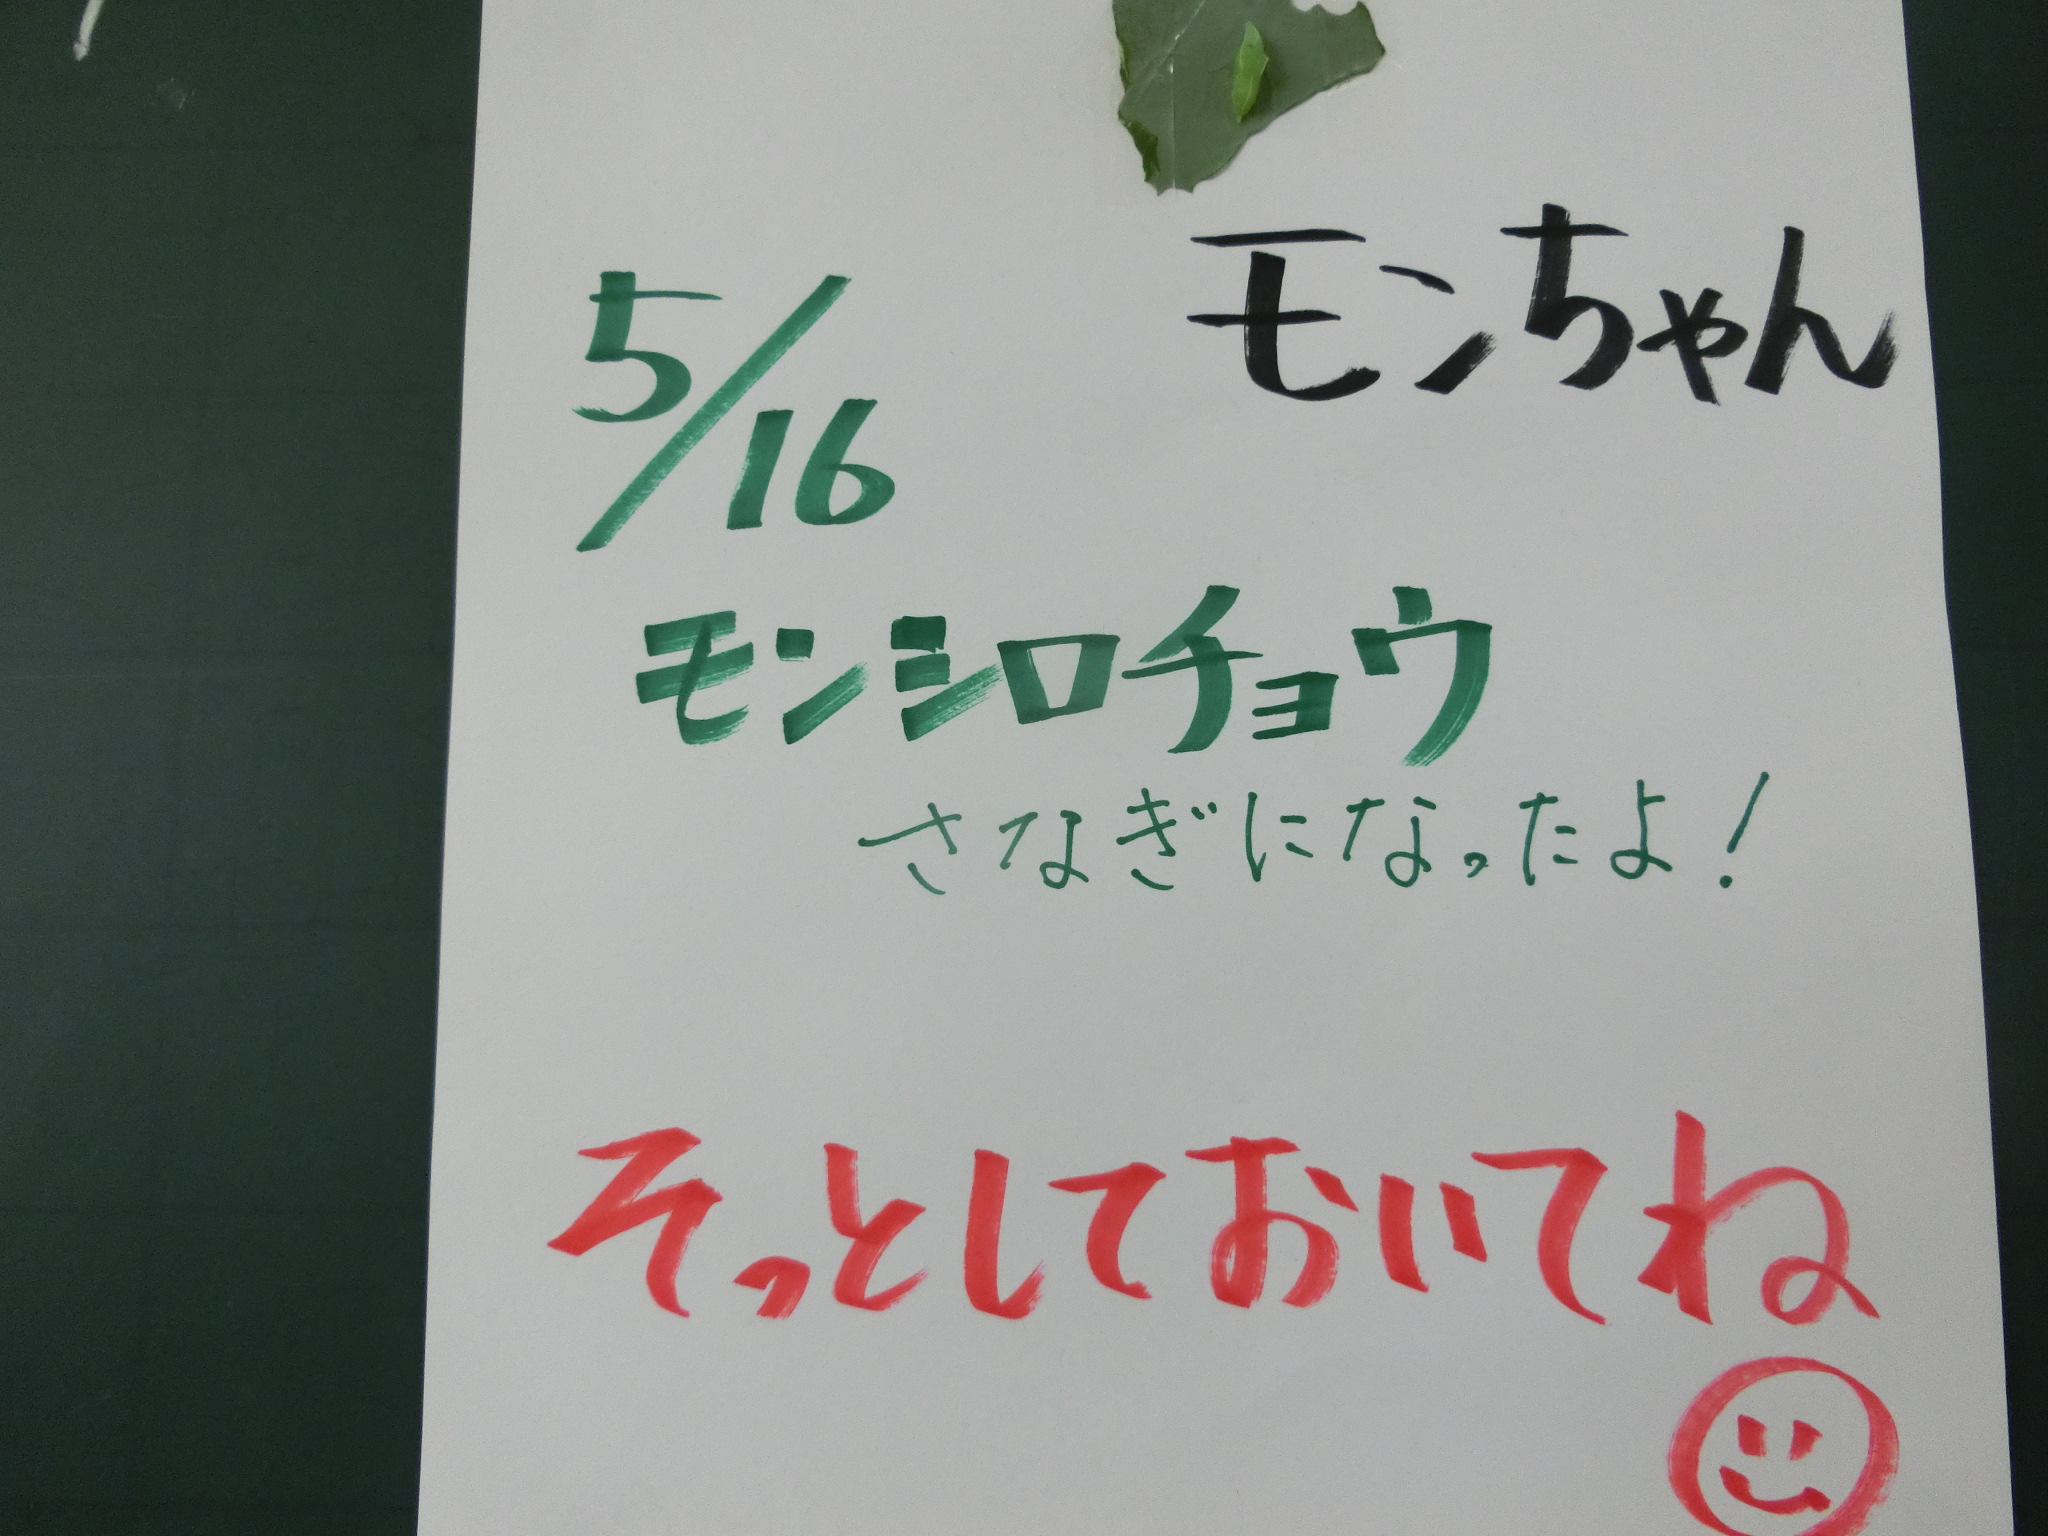 モンちゃん
5/16
モンシロチョウ
さなぎになったよ!
そっとしておいてね